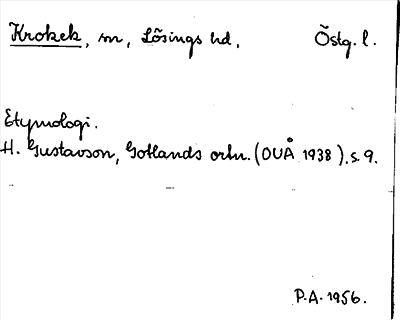 Krokek, sn, Lösings hd, Östg. l.
Etymologi.
H. Gustavson, Gotlands ortn. (OUÅ 1938). s. 9.
P.A. 1956.